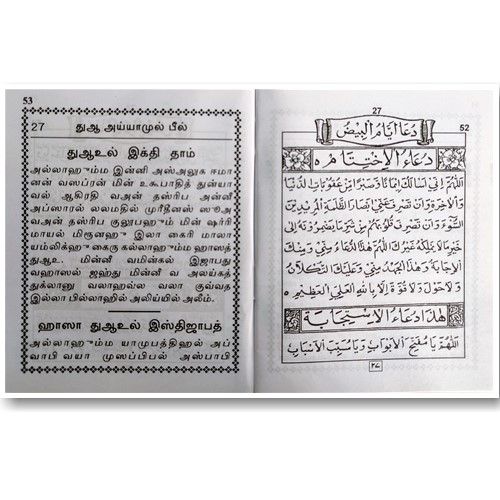 53
27 துஆ அய்யாமுல் பீல்
துஆஉல் இக்தி தாம்
அல்லாஹும்ம இன்னி அஸ்அலுக ஈமா
னன் வஸப்ரன் மின் உகூபாதித் துன்யா
வல் ஆகிரதி வஅன் தஸ்ரிப அன்னீ
அப்ஸாரல் லலமதில் முரீதீனஸ் ஸூஅ
வஅன் தஸ்ரிப குலூபஹும் மின் ஷர்ரி
மாயல் மிரூனஹு இலா கைரி மாலா
யம்லிக்ஹு கைரு கல்லாஹும்ம ஹாஸத்
துஆஉ. மின்னீ வமின்கல் இஜாபது
வஹாஸல் ஜஹ்து மின்னீ வ அலய்கத்
துக்லானு வலாஹவ்ல வலா குவ்வத
இல்லா பில்லாஹில் அலிய்யில் அலீம்.
ஹாஸா துஆஉல் இஸ்திஜாபத்
அல்லாஹும்ம யாமுபத்திஹல் அப்
வாபி வயா முஸப்பிபல் அஸ்பாபி
27
52
دعا ايام البيض
دعاء الاختتام
اللهم اني اسالك ايمانا وصبرا من عقوبات الدنيا
والاخرة وان تصرف عني ابصار الظلمة المريدين
السوء وان تصرف قلوبهم من شر ما يضمرونه الى
خير مالا يملكه غيرك اللهم هذا الدعاء مني ومنك
الاجابة وهذا الجهد مني وعليك التكلان
ولاحول ولا قوة الا بالله العلي العظيم
هذا دعاء الاستجابة
اللهم يا مفتح الابواب ويا مسبب الاسباب
٢٧